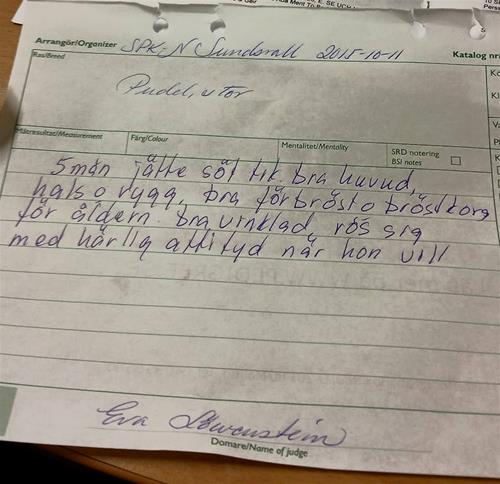 Arrangör/Organizer SPK-N Sundsvall 2015-10-11
Katalog nr/
Ras/Breed
Pudel, stor
Mätresultat/Measurement Färg/Colour Mentalitet/Mentality SRD notering
BSI notes
5 mån jätte söt tik bra huvud,
hals o rygg, bra förbröst o bröstkorg
för åldern. bra vinklad, rös sig
med härlig attityd när hon vill
Eva Löwenstein
Domare/Name of judge